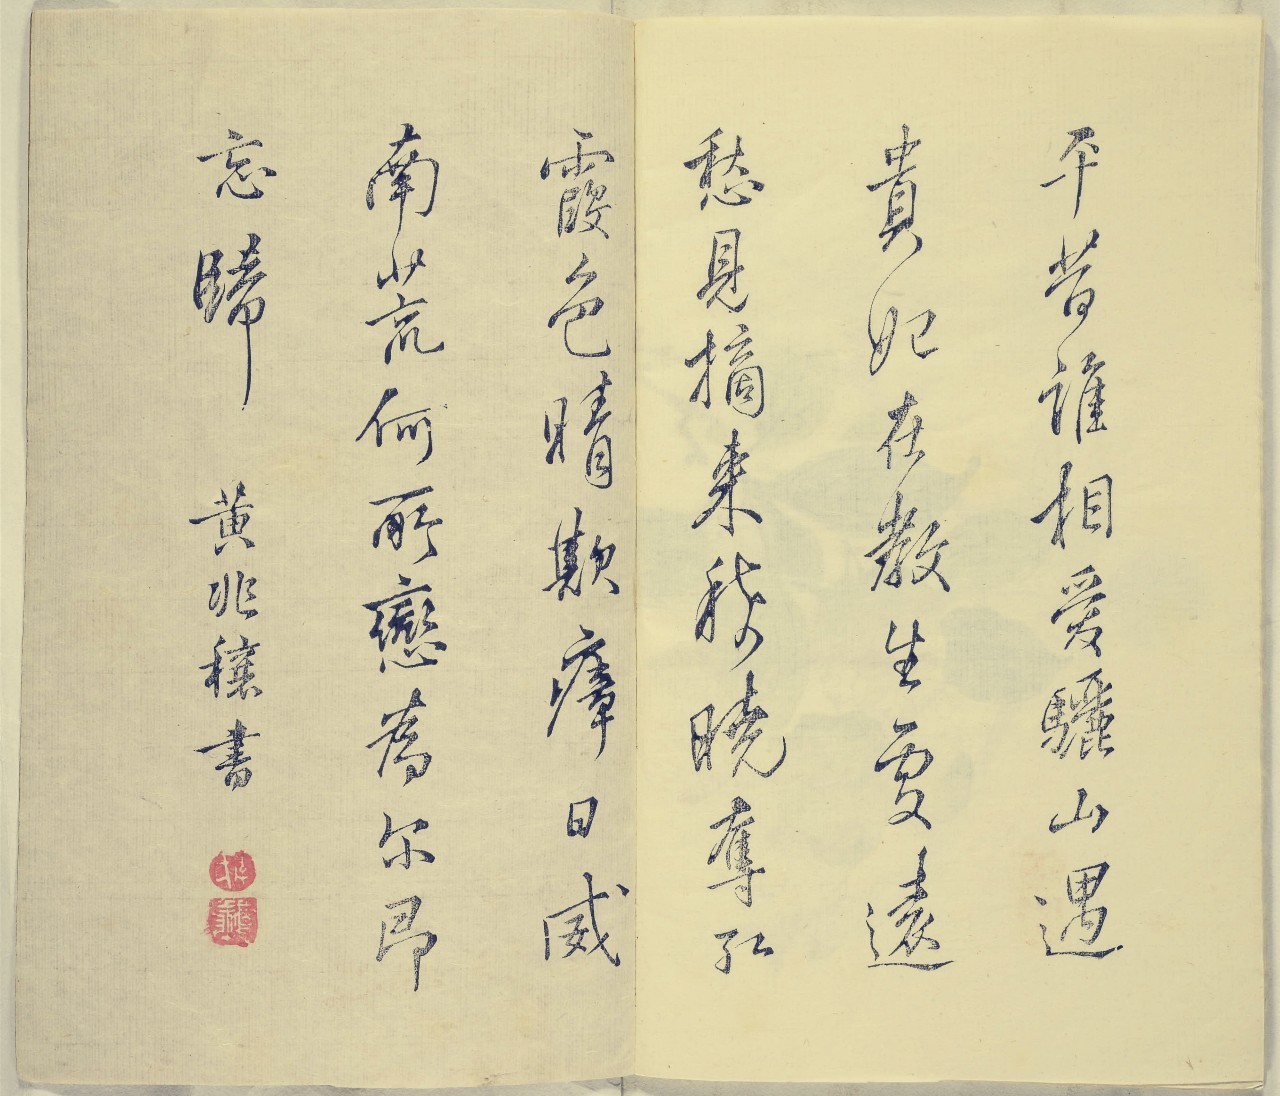 平昔誰相愛驪山遇
貴妃在教生處遠
愁見摘来稀曉奪紅
霞色晴欺瘴日威
南荒何所戀為尔即
忘歸 黄兆穰書